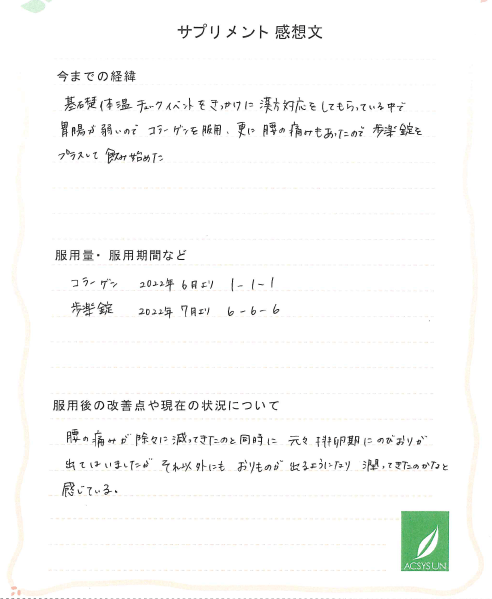 サプリメント 感想文
今までの経緯
基礎体温チェックイベントをきっかけに漢方対応をしてもらっている中で
胃腸が弱いので コラーゲンを服用、更に 腰の痛みもあったので 歩楽錠を
プラスして 飲み始めた
服用量・服用期間など
コラーゲン 2022年 6月より 1-1-1
歩楽錠 2022年 7月より 6-6-6
服用後の改善点や現在の状況について
腰の痛みが 除々に減ってきたのと同時に 元々排卵期にのびおりが
出てはいましたが それ以外にも おりものが 出るようになり 潤ってきたのかなと
感じている。
ACSYSUN